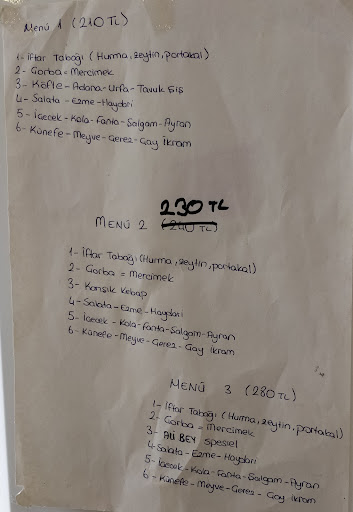 Menü 1 (210 TL)
1- İftar Tabağı (Hurma, zeytin, portakal)
2- Çorba = Mercimek
3- Köfte - Adana - Urfa - Tavuk Şiş
4- Salata - Ezme - Haydari
5- İçecek - Kola - Fanta - Şalgam - Ayran
6- Künefe - Meyve - Çerez - Çay İkram
230 TL
MENÜ 2 (240 TL)
1- İftar Tabağı (Hurma, zeytin, portakal)
2- Çorba = Mercimek
3- Karışık Kebap
4- Salata - Ezme - Haydari
5- İçecek - Kola - Fanta - Salgam - Ayran
6- Künefe - Meyve - Çerez - Çay İkram
MENÜ 3 (280 TL)
1- İftar Tabağı (Hurma, zeytin, portakal)
2- Çorba = Mercimek
3- ALİ BEY spesiel
4- Salata - Ezme - Haydari
5- İçecek - Kola - Fanta - Salgam - Ayran
6- Künefe - Meyve - Çerez - Çay İkram